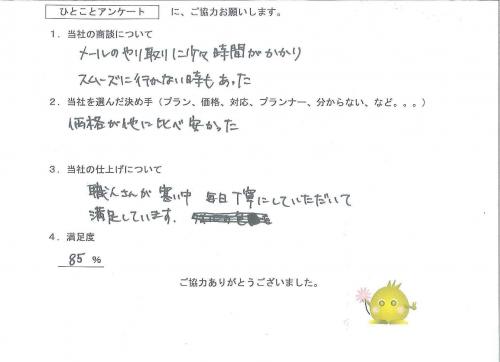 ひとことアンケート に、ご協力お願いします。
1．当社の商談について
メールのやり取りに少々時間がかかり
スムーズに行かない時もあった
2．当社を選んだ決め手（プラン、価格、対応、プランナー、分からない、など。。。）
価格が他に比べ安かった
3．当社の仕上げについて
職人さんが寒い中 毎日丁寧にしていただいて
満足しています。
4．満足度
85 %
ご協力ありがとうございました。